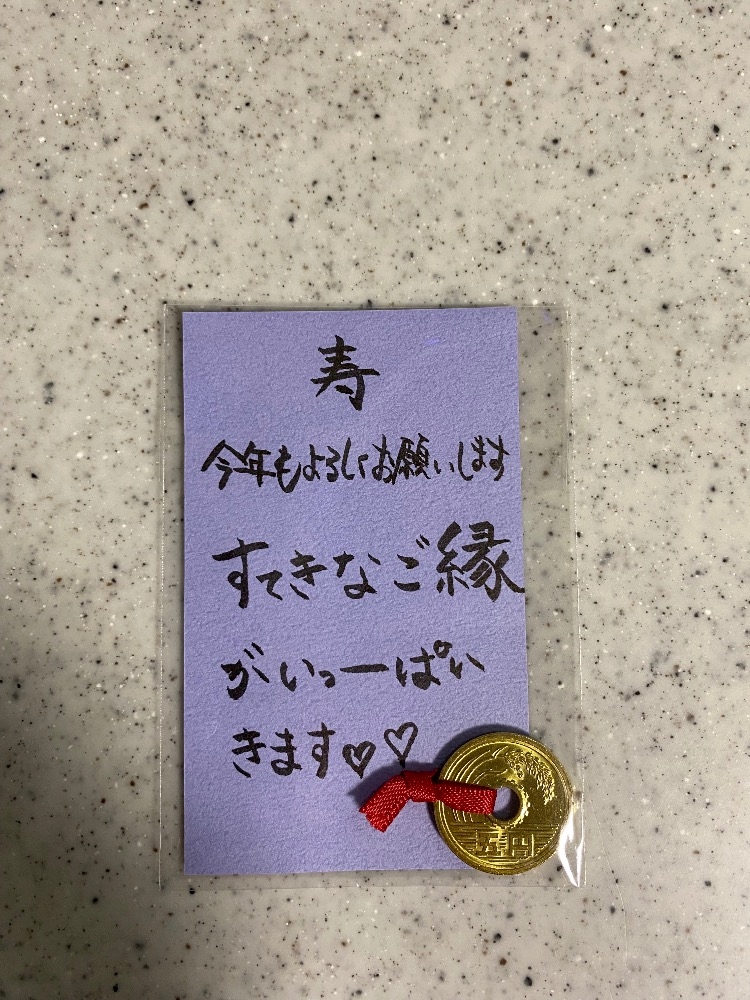 寿
今年もよろしくお願いします
すてきなご縁
がいっーぱい
きます♡♡
五円